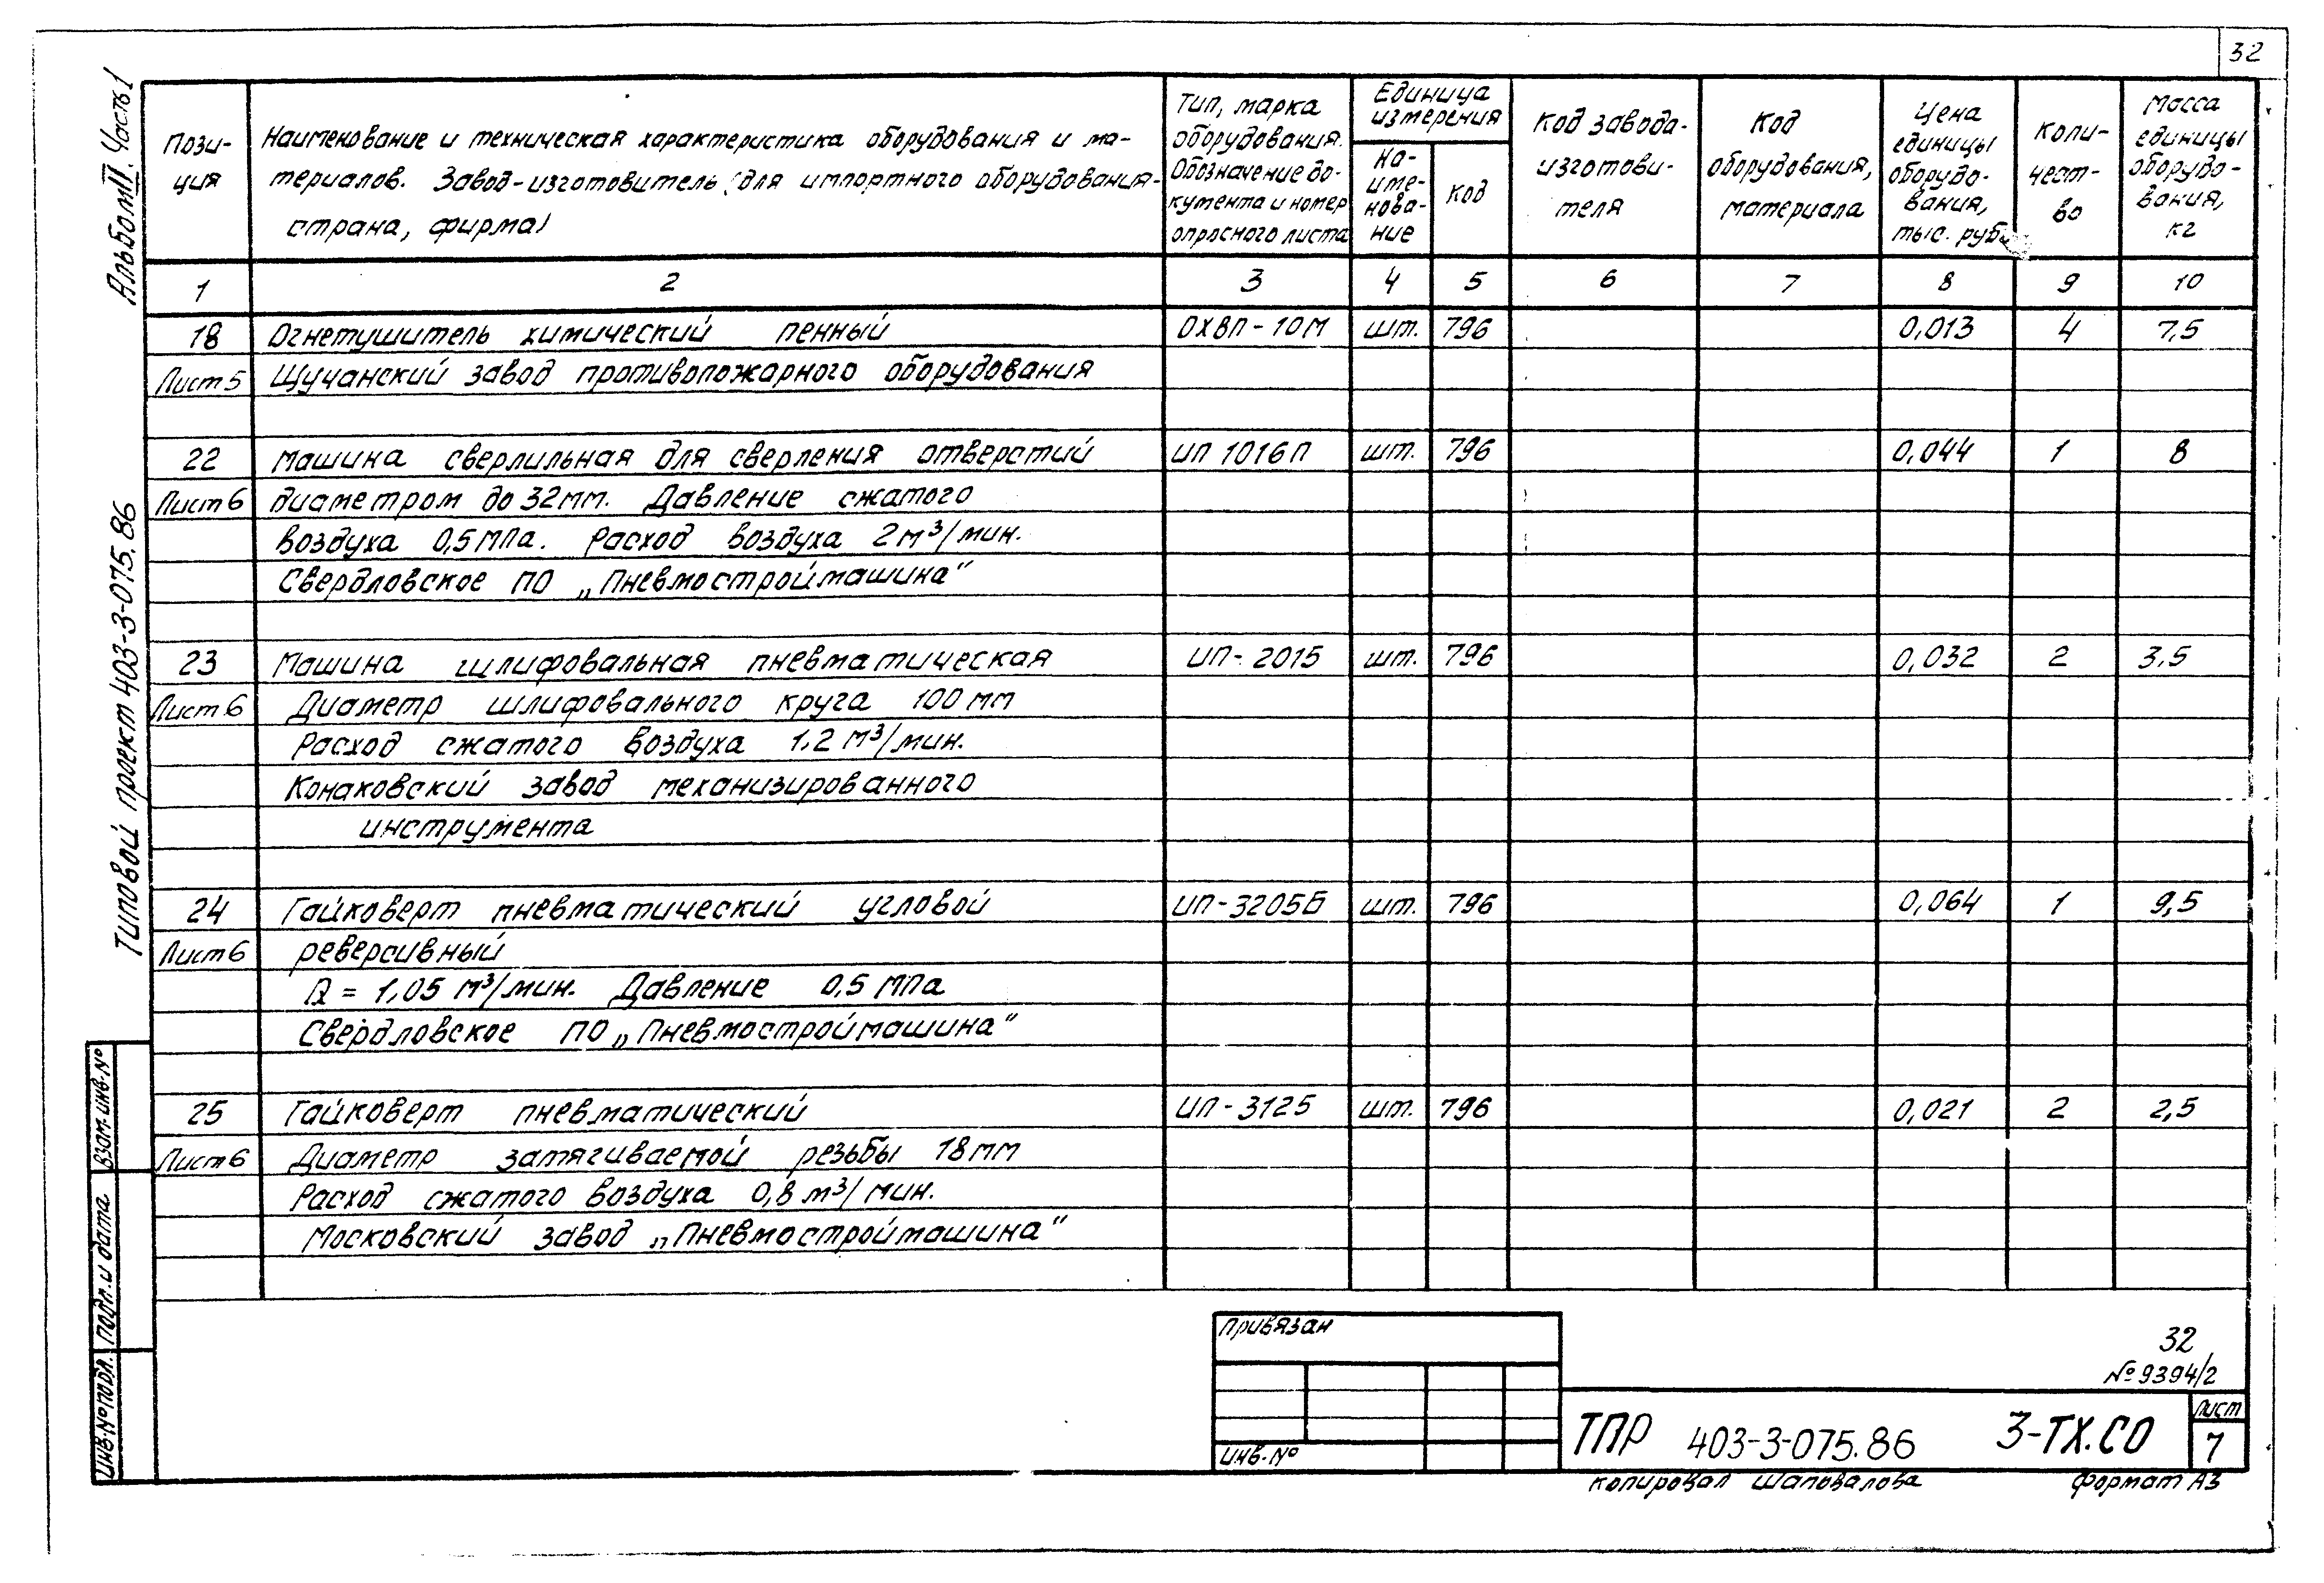 32
Альбом II. Часть 1
Типовой проект 403-3-075.86
Пози-
ция
Наименование и техническая характеристика оборудования и ма-
териалов. Завод-изготовитель (для импортного оборудования-
страна, фирма)
Тип, марка
оборудования.
Обозначение до-
кумента и номер
опросного листа
Единица
измерения
На-
име-
нова-
ние
Код
Код завода-
изготови-
теля
Код
оборудования,
материала
Цена
единицы
оборудо-
вания,
тыс. руб.
Коли-
чест-
во
Масса
единицы
оборудо-
вания,
кг
1 2 3 4 5 6 7 8 9 10
18 Огнетушитель химический пенный ОХВП-10М шт. 796 0,013 4 7,5
Лист 5 Щучанский завод противопожарного оборудования
22 Машина сверлильная для сверления отверстий ИП 1016П шт. 796 0,044 1 8
Лист 6 диаметром до 32мм. Давление сжатого
воздуха 0,5 МПа. Расход воздуха 2 м³/мин.
Свердловское ПО „Пневмостроймашина"
23 Машина шлифовальная пневматическая ИП-2015 шт. 796 0,032 2 3,5
Лист 6 Диаметр шлифовального круга 100 мм
Расход сжатого воздуха 1,2 м³/мин.
Конаковский завод механизированного
инструмента
24 Гайковерт пневматический угловой ИП-3205Б шт. 796 0,064 1 9,5
Лист 6 реверсивный
Q = 1,05 м³/мин. Давление 0,5 МПа
Свердловское ПО „Пневмостроймашина"
25 Гайковерт пневматический ИП-3125 шт. 796 0,021 2 2,5
Лист 6 Диаметр затягиваемой резьбы 18 мм
Расход сжатого воздуха 0,8 м³/мин.
Московский завод „Пневмостроймашина"
Взам. инв. №
Подп. и дата
Инв. № подл.
Привязан
Инв. №
32
№ 9394/2
ТПР 403-3-075.86 3-ТХ.СО
Лист
7
Копировал Шаповалова Формат А3